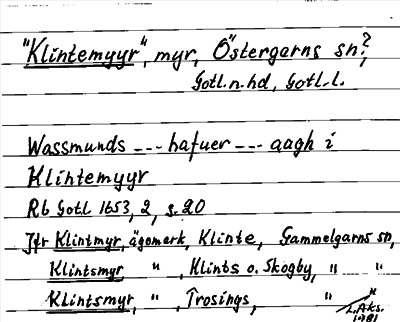 "Klintemyyr", myr, Östergarns sn?,
Gotl.n.hd, Gotl.l.
Wassmunds --- hafuer --- aagh i
Klintemyyr
Rb Gotl 1653, 2, s.20
Jfr Klintmyr, ägomark, Klinte, Gammelgarns sn,
Klintsmyr " , Klints o. Skogby, " "
Klintsmyr, " , Trosings, " "
L.Aks.
1981